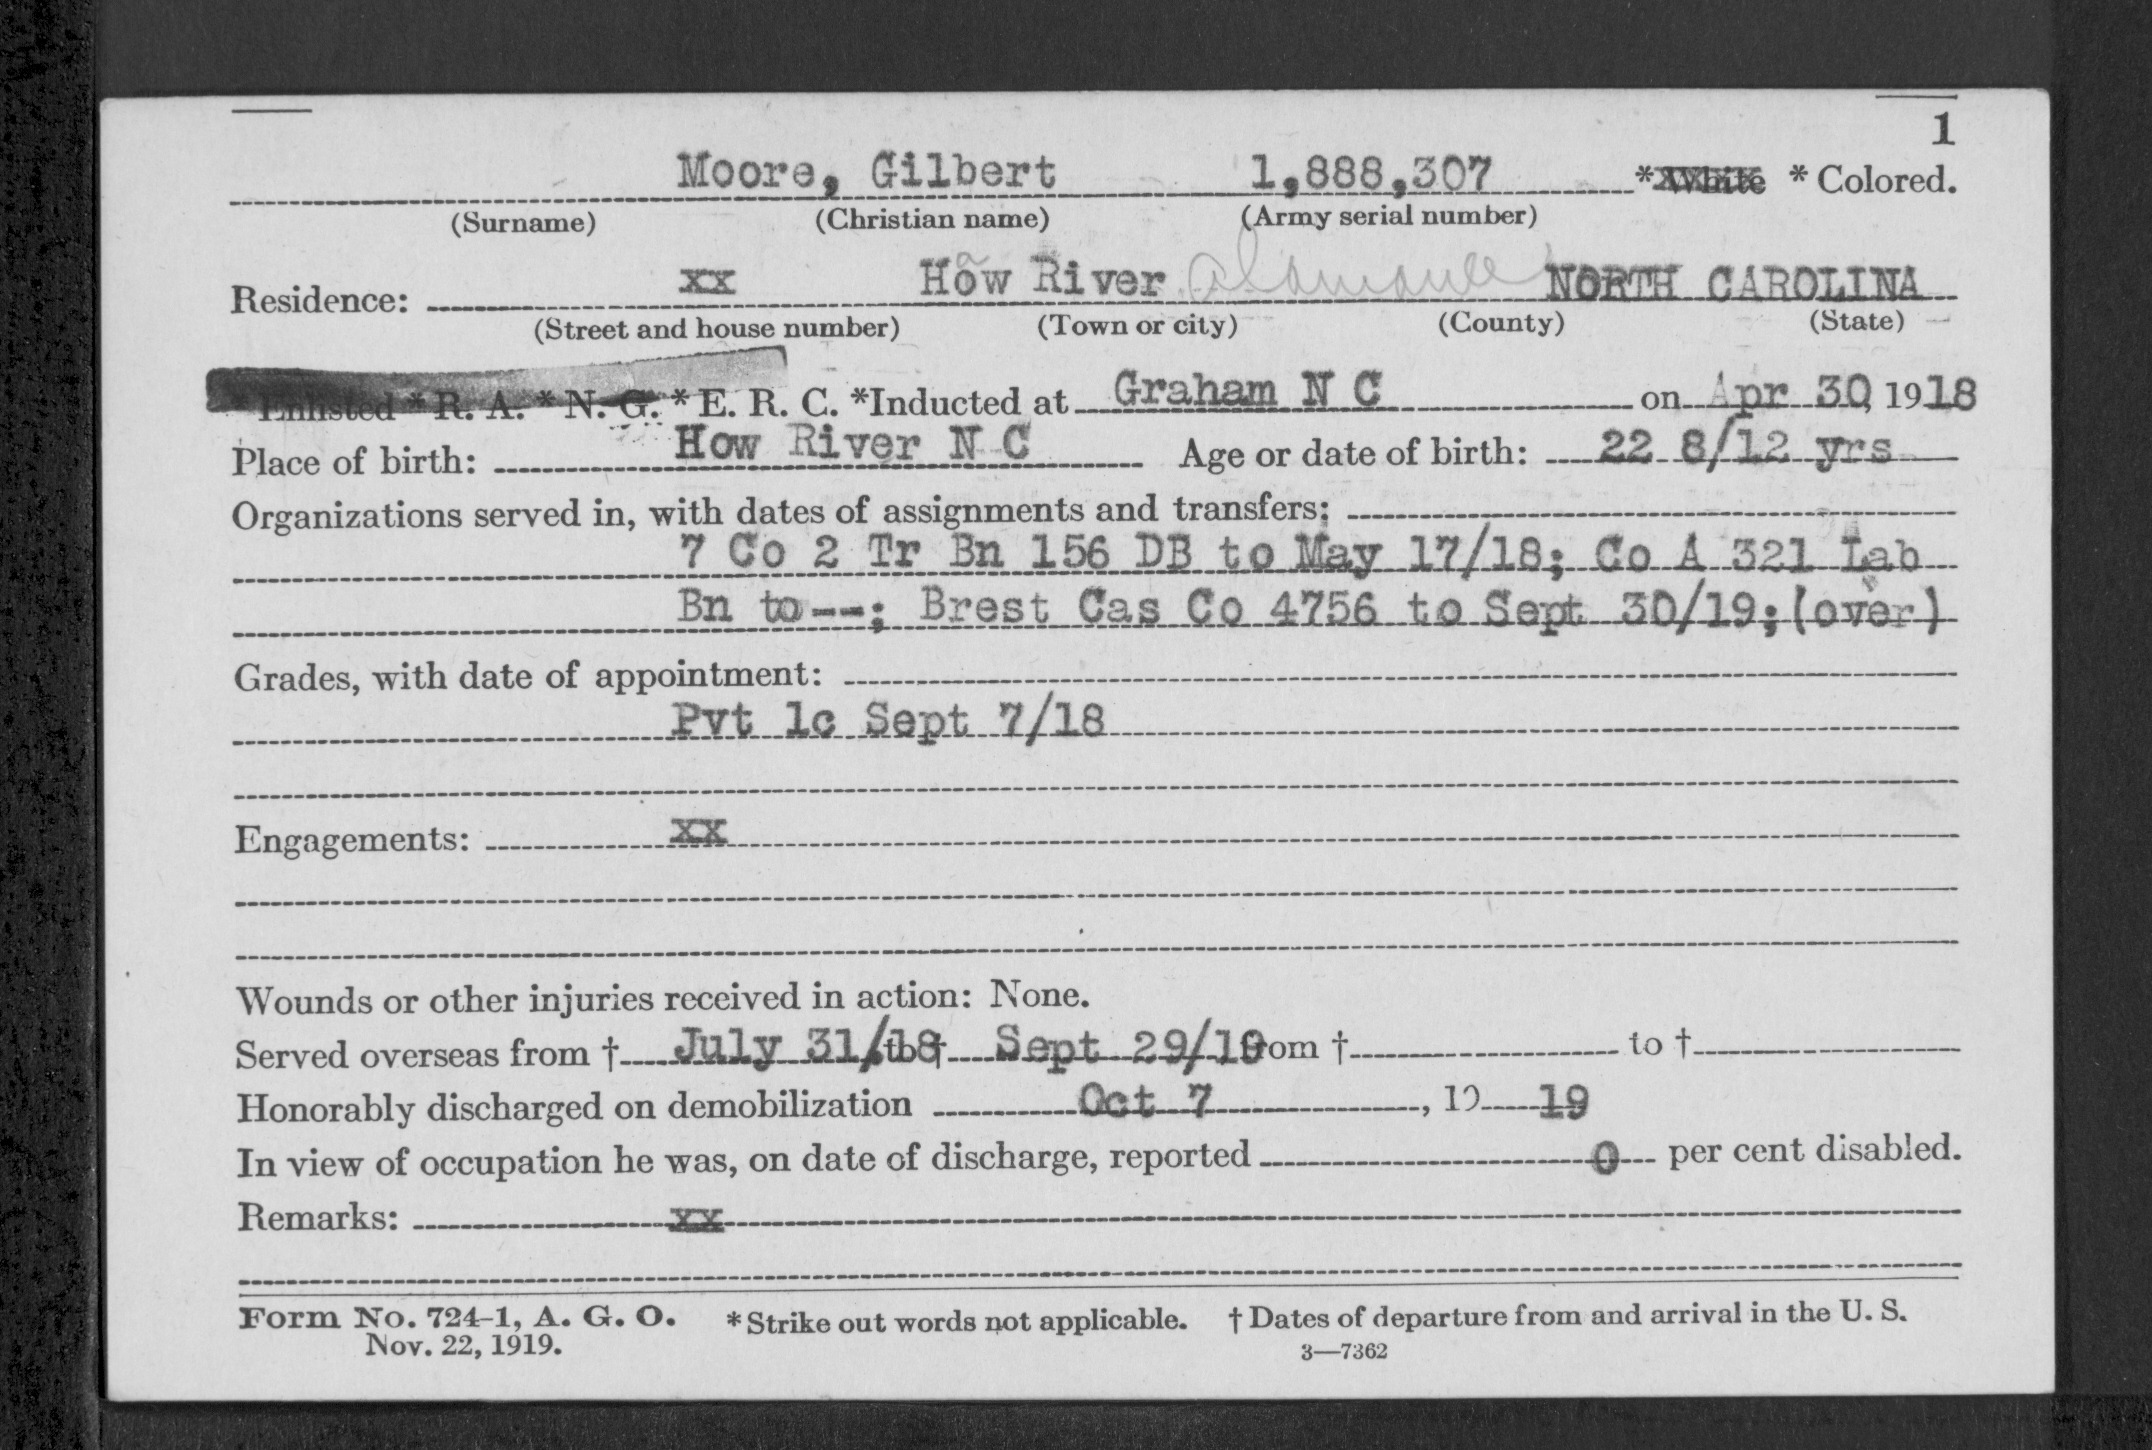 1
Moore, Gilbert 1,888,307 * White * Colored.
(Surname) (Christian name) (Army serial number)
Residence: xx How River Alamance NORTH CAROLINA
(Street and house number) (Town or city) (County) (State)
* Enlisted * R. A. * N. G. * E. R. C. *Inducted at Graham N C on Apr 30, 1918
Place of birth: How River N C Age or date of birth: 22 8/12 yrs
Organizations served in, with dates of assignments and transfers:
7 Co 2 Tr Bn 156 DB to May 17/18; Co A 321 Lab
Bn to--; Brest Cas Co 4756 to Sept 30/19;(over)
Grades, with date of appointment:
Pvt 1c Sept 7/18
Engagements: xx
Wounds or other injuries received in action: None.
Served overseas from † July 31/18 to † Sept 29/19 from † to †
Honorably discharged on demobilization Oct 7, 19 19
In view of occupation he was, on date of discharge, reported 0 per cent disabled.
Remarks: xx
Form No. 724-1, A. G. O. * Strike out words not applicable. † Dates of departure from and arrival in the U. S.
Nov. 22, 1919. 3—7362